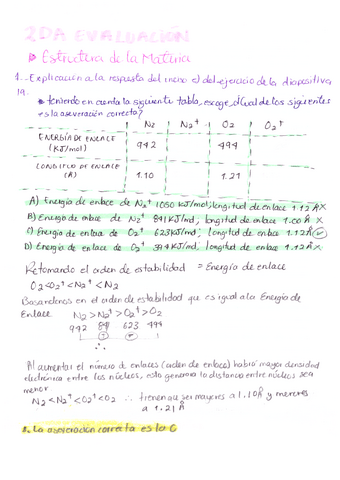 2DA EVALUACIÓN
Estructura de la Materia
1.- Explicación a la respuesta del inciso c) del ejercicio de la diapositiva
19.
teniendo en cuenta la siguiente tabla, escoge ¿Cuál de los siguientes
es la aseveración correcta?
N₂ N₂⁺ O₂ O₂⁺
ENERGÍA DE ENLACE 942 494
(KJ/mol)
LONGITUD DE ENLACE 1.10 1.21
(Å)
A) Energía de enlace de N₂⁺ 1050 KJ/mol; longitud de enlace 1.12 Å X
B) Energía de enlace de N₂⁺ 841 KJ/mol; longitud de enlace 1.00 Å X
C) Energía de enlace de O₂⁺ 623 KJ/mol; longitud de enlace 1.12 Å ✓
D) Energía de enlace de O₂⁺ 394 KJ/mol; longitud de enlace 1.12 Å X
Retomando el orden de estabilidad = Energía de enlace
O₂<O₂⁺<N₂⁺<N₂
Basandonos en el orden de estabilidad que es igual a la Energía de
Enlace N₂>N₂⁺>O₂⁺>O₂
942 841 623 494
∴
Al aumentar el número de enlaces (orden de enlace) habrá mayor densidad
electrónica entre los núcleos, esto genera la distancia entre núcleos sea
menor
N₂<N₂⁺<O₂⁺<O₂ ∴ tienen que ser mayores a 1.10 Å y menores
a 1.21 Å
La aseveración correcta es la C